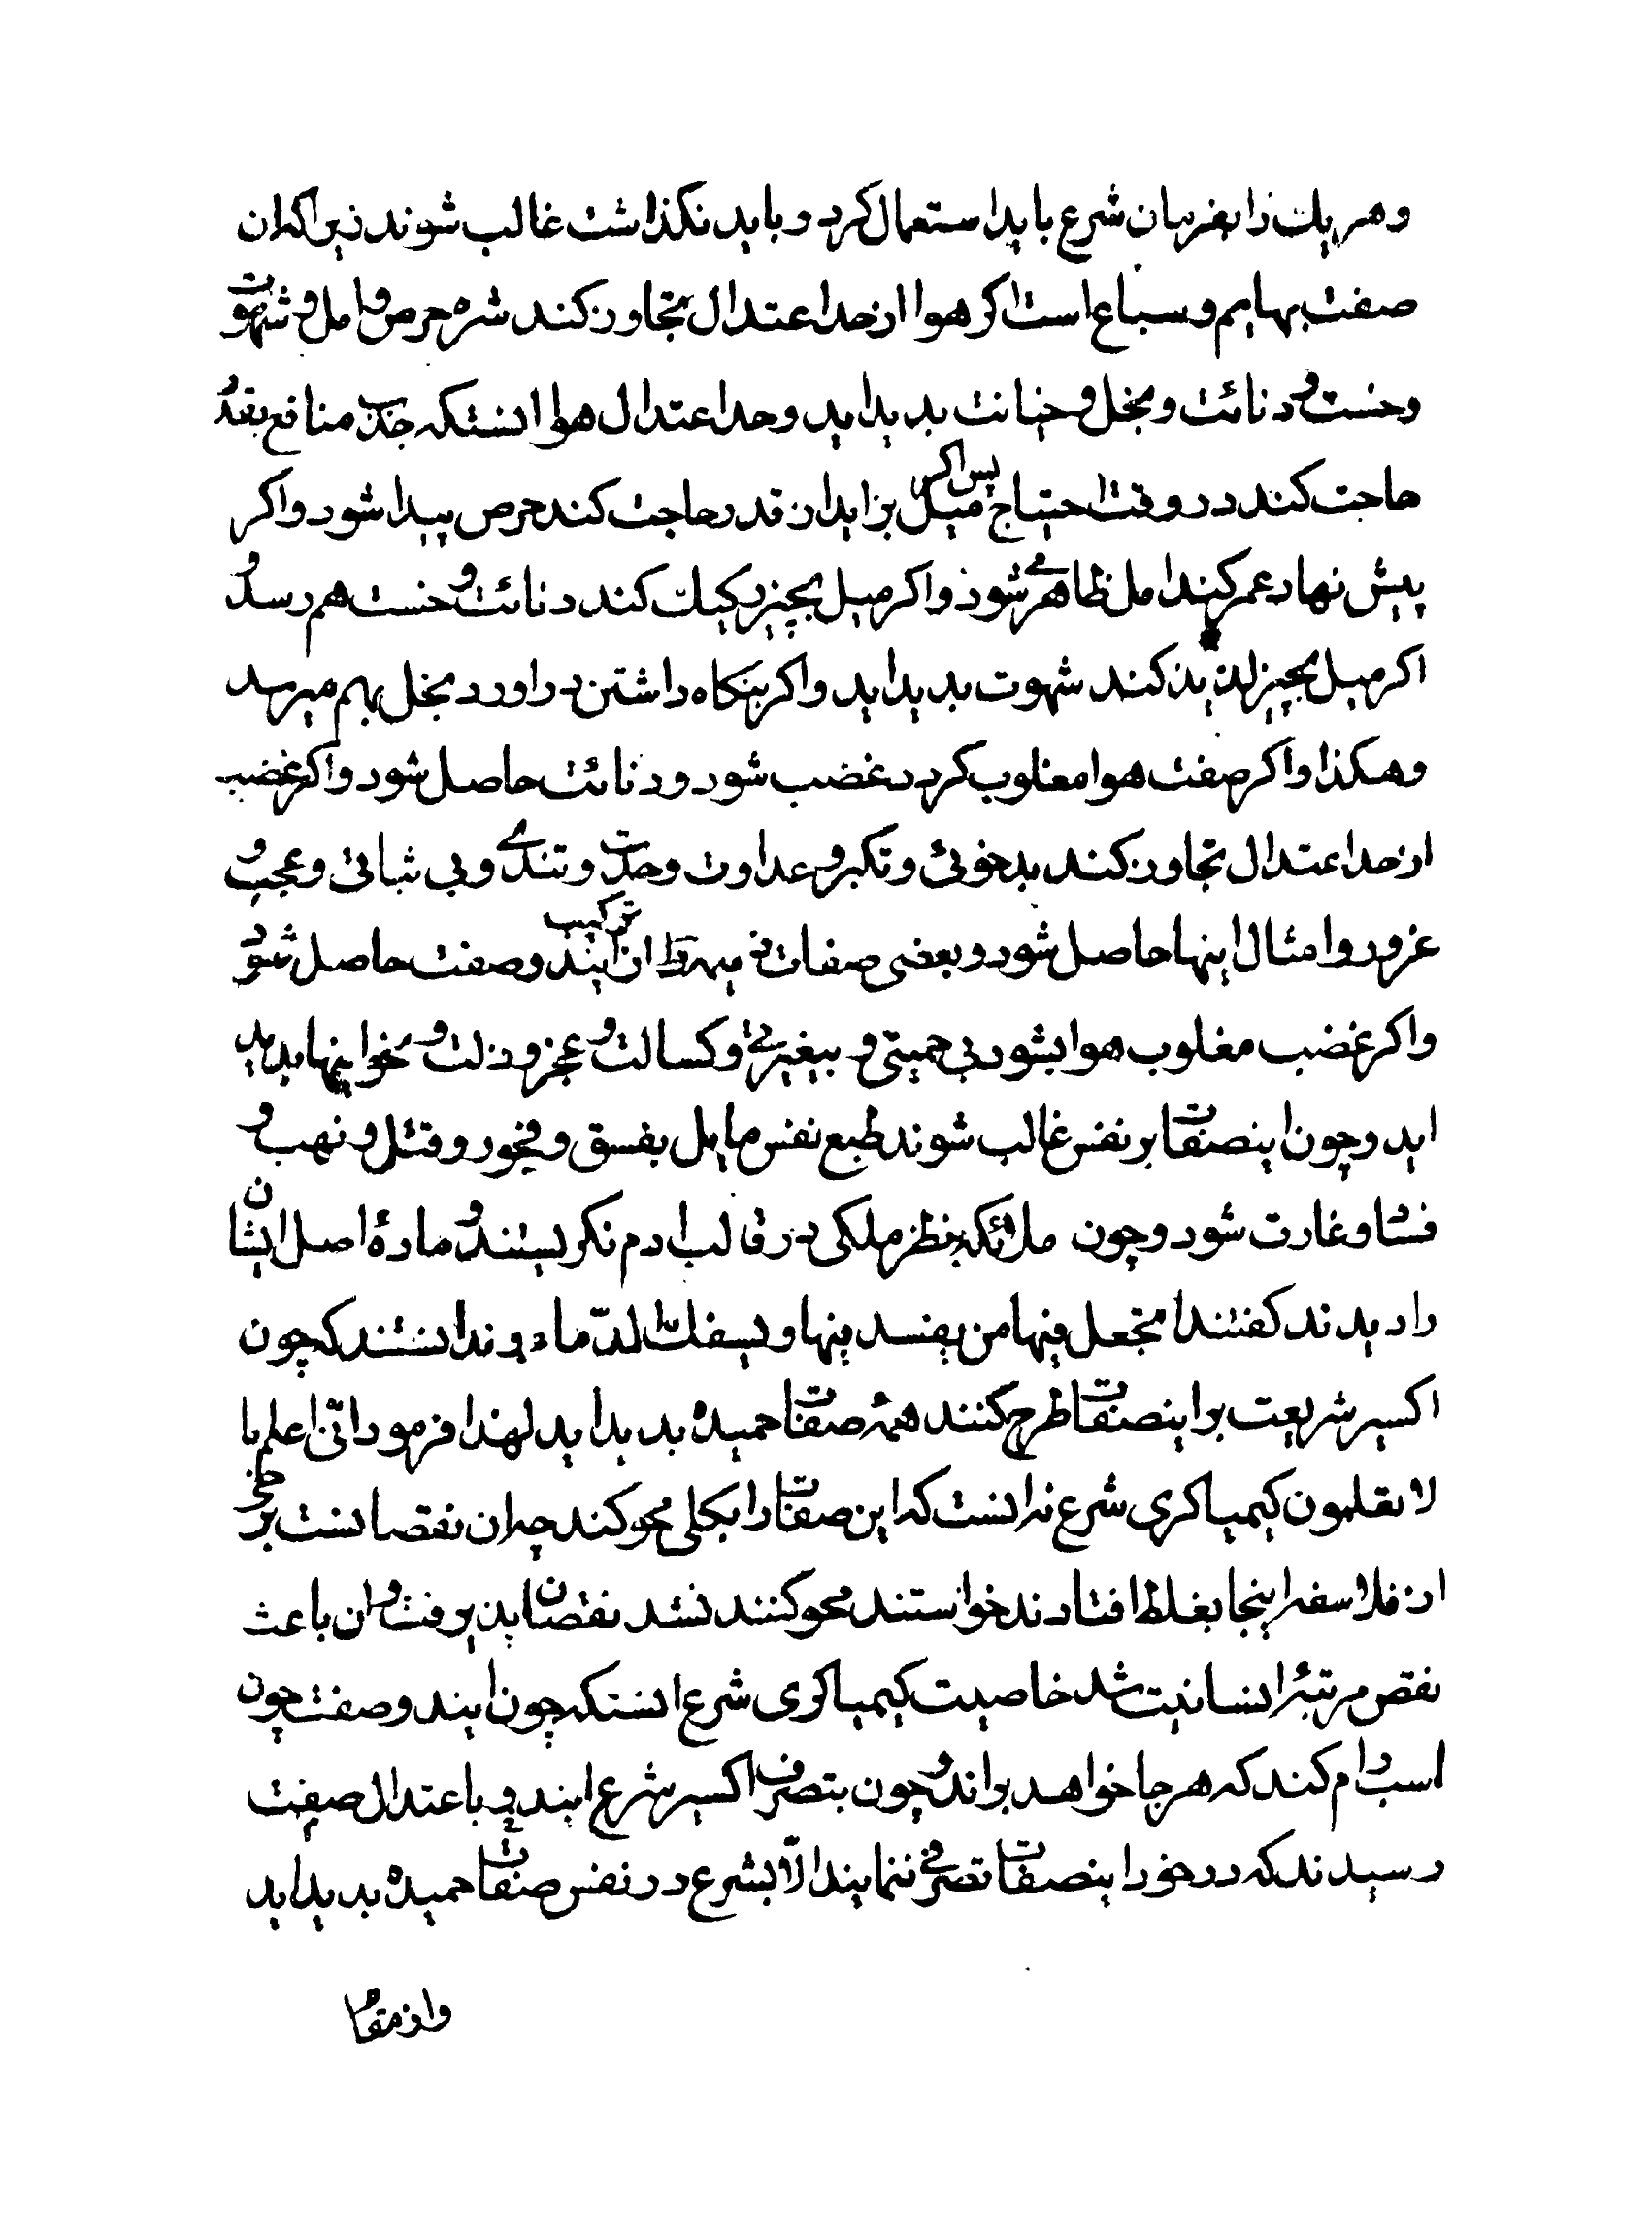 وهريك را بفرمان شرع بايد استعمال كرد و بايد نكذاشت غالب شوند زيرا كه ان
صفت بهايم و سباع است اكر هوا از حد اعتدال تجاوز كند شره و حرص و امل و شهوت
و خست و دنائت و بخل و خيانت بديد ايد و حد اعتدال هوا انستكه جذب منافع بقدر
حاجت كند در وقت احتياج پس اكر ميل بزايد از قدر حاجت كند حرص پيدا شود و اكر
پيش نهاد عمر كند امل ظاهر مي شود و اكر ميل بچيز ركيك كند دنائت و خست هم رسد و
اكر ميل بچيز لذيذ كند شهوت بديد ايد و اكر بنكاه داشتن در اورد بخل بهم ميرسد
و هكذا و اكر صفت هوا مغلوب كردد غضب شود و دنائت حاصل شود و اكر غضب
از حد اعتدال تجاوز كند بدخوئي و تكبر و عداوت و حدت و تندي و بي ثباتي و عجب و
غرور و امثال اينها حاصل شود و بعضي صفات از تركيب ايندو صفت حاصل شود
و اكر غضب مغلوب هوا بشود بي حميتي و بيغيرتي و كسالت و عجز و ذلت و نحو اينها بديد
ايد و چون اينصفات بر نفس غالب شوند طبع نفس مايل بفسق و فجور و قتل و نهب و
فساد و غارت شود و چون ملائكه بنظر ملكي در قالب ادم نكريستند و ماده اصل ايشان
را ديدند كفتند اتجعل فيها من يفسد فيها و يسفك الدّماء و ندانستند كه چون
اكسير شريعت بر اينصفات طرح كنند همه صفات حميده بديد ايد لهذا فرمود انّي اعلم ما
لا تعلمون كيميا كري شرع نه انست كه اين صفات را بكلي محو كند چه ان نقصانست برخي
از فلاسفه اينجا بغلط افتادند خواستند محو كنند نشد نقصان پذيرفت و ان باعث
نقص مرتبه انسانيت شد خاصيت كيميا كري شرع انستكه چون ايندو صفت چون
اسب رام كند كه هر جا خواهد براند و چون بتصرف اكسير شرع ايندو باعتدال صفت
رسيدند كه در خود اينصفات تصرفي ننمايند الّا بشرع در نفس صفات حميده بديد ايد
و از مقام